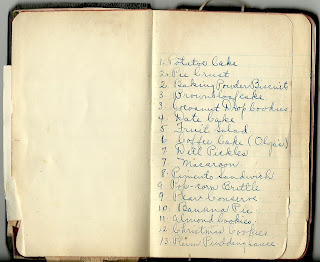 1. Potatoe Cake
2. Pie Crust
2 Baking Powder Biscuit
3 Brownloafcake
3. Cocoanut Drop Cookies
4 Date Cake
5 Fruit Salad
6 Coffee Cake (Olga's)
7 Dill Pickles
7. Macaroon
8. Pimento Sandwich
9 Pop-corn Brittle
9 Pear Conserve
10. Banana Pie
11 Almond Cookies
12 Christmas Cookies
13 Plum Pudding sauce